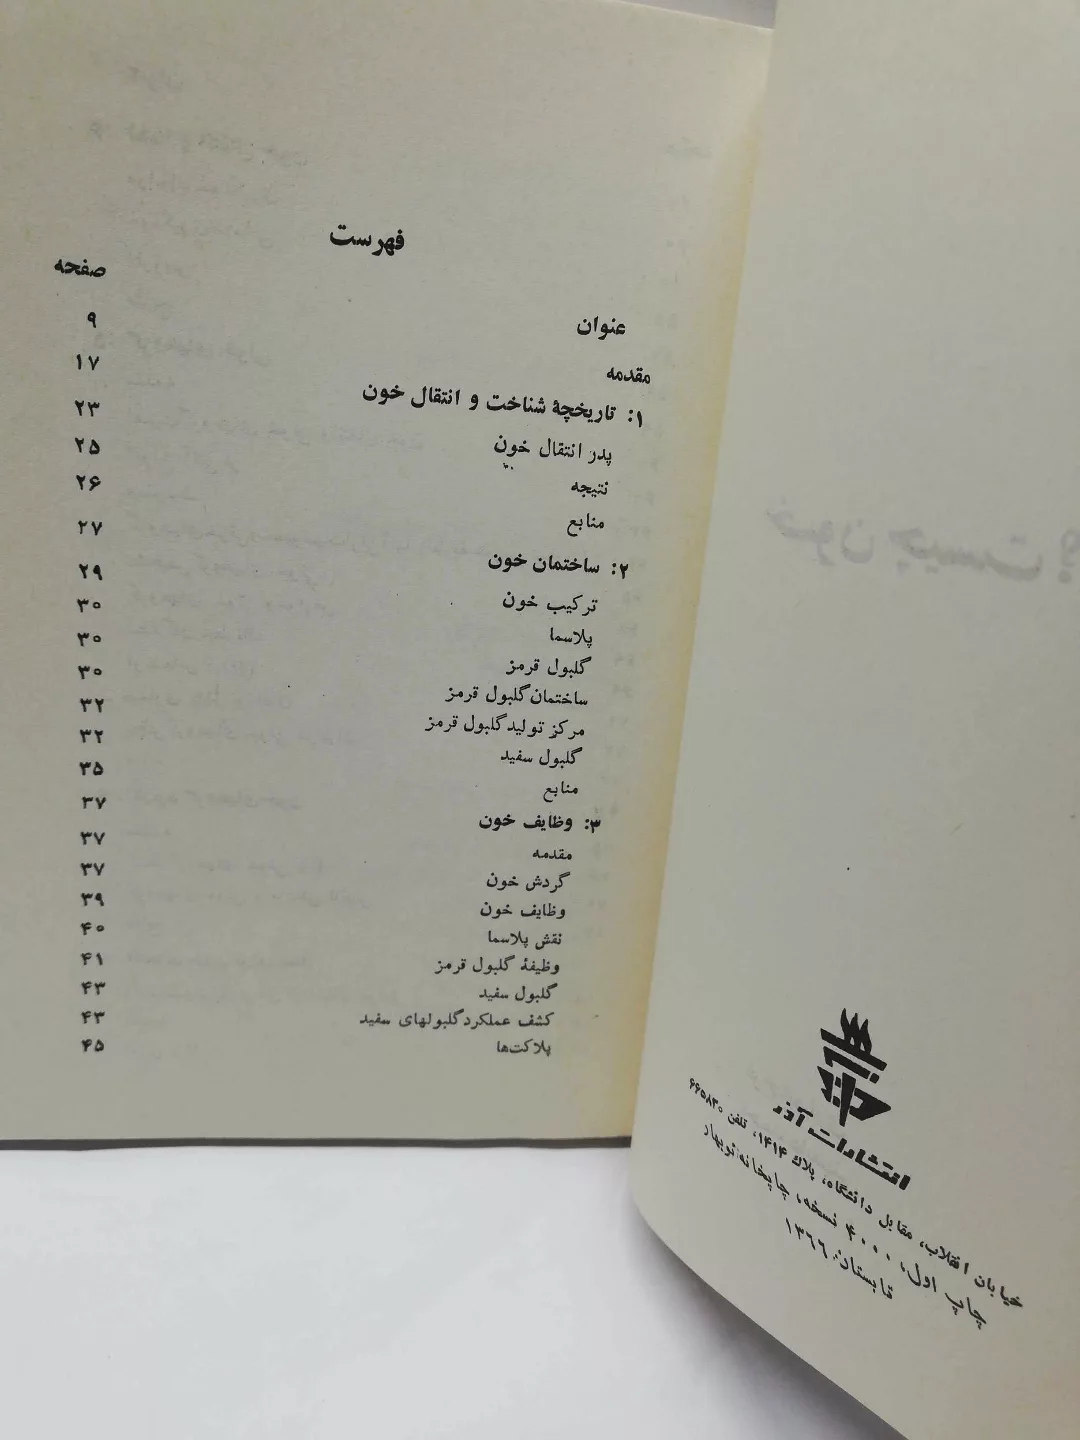 فهرست
صفحه
عنوان
۹
مقدمه
۱۷
۱: تاریخچهٔ شناخت و انتقال خون
۲۳
پدر انتقال خون
۲۵
نتیجه
۲۶
منابع
۲۷
۲: ساختمان خون
۲۹
ترکیب خون
۳۰
پلاسما
۳۰
گلبول قرمز
۳۰
ساختمان گلبول قرمز
۳۲
مرکز تولید گلبول قرمز
۳۲
گلبول سفید
۳۵
منابع
۳۷
۳: وظایف خون
۳۷
مقدمه
۳۷
گردش خون
۳۹
وظایف خون
۴۰
نقش پلاسما
۴۱
وظیفهٔ گلبول قرمز
۴۳
گلبول سفید
۴۳
کشف عملکرد گلبولهای سفید
۴۵
پلاکت‌ها
انتشارات آذر
خیابان انقلاب، مقابل دانشگاه، پلاك ۱۴۱۴، تلفن ۶۶۵۸۳۰
چاپ اول، ۴۰۰۰ نسخه، چاپخانه نوبهار
تابستان ۱۳۶۶